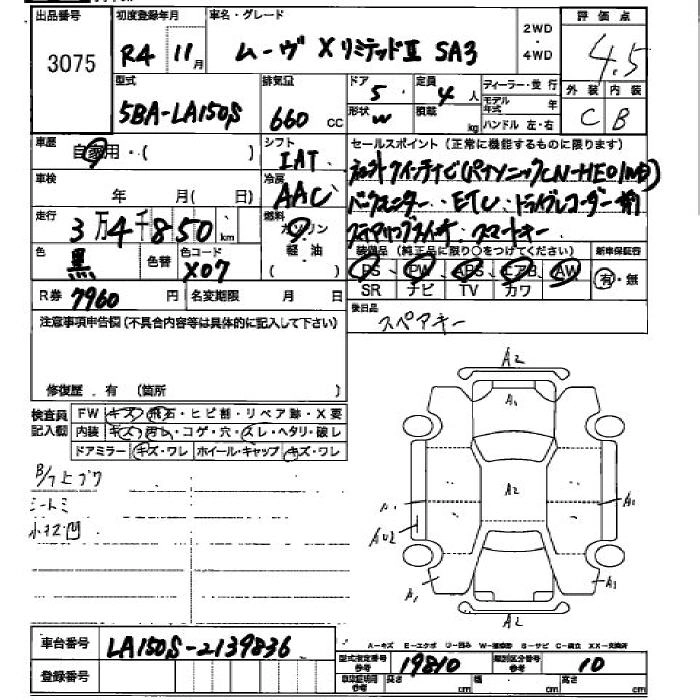 出品番号
3075
初度登録年月
R4 11月
車名・グレード
ムーヴ XリミテッドⅡ SA3
2WD
・
4WD
評価点
4.5
外装 内装
C B
型式
5BA-LA150S
排気量
660 CC
ドア
5
形状
定員
4 人
積載
kg
ディーラー・並行
モデル年式 年
ハンドル 左・右
車歴
自家用・( )
シフト
IAT
車検
年 月( 日)
冷房
AAC
走行
3万4千850 km
燃料
ガソリン
軽油
( )
色
黒
色替
色コード
X07
R券 7960 円
名変期限 月 日
セールスポイント(正常に機能するものに限ります)
ETC、ドライブレコーダー前
スマートキー
装備品(純正品に限り○をつけてください)
PS PW ABS エアB AW
SR ナビ TV カワ
新車保証書
有・無
後日品
スペアキー
注意事項申告欄(不具合内容等は具体的に記入して下さい)
修復歴・有(箇所 )
検査員記入欄
FW キズ・飛石・ヒビ割・リペア跡・X要
内装 キズ・汚れ・コゲ・穴・スレ・ヘタリ・破レ
ドアミラー キズ・ワレ ホイール・キャップ キズ・ワレ
シートシミ
小キズ凹
A2
A1
A2
A1
AU2
A1
A1
A2
A-キズ E-エクボ U-凹み W-補修跡 S-サビ C-腐食 XX-交換済
車台番号
LA150S-2139836
登録番号
型式指定番号
参考
19810
類別区分番号
参考
10
車車証記載
参考
長さ cm
幅 cm
高さ cm